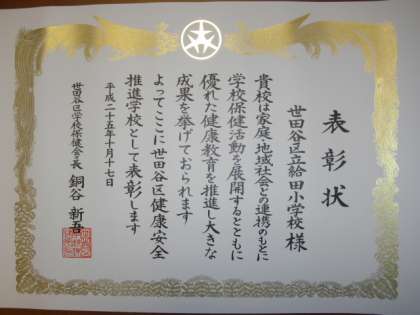 表彰状
世田谷区立給田小学校 様
貴校は家庭・地域社会との連携のもとに
学校保健活動を展開するとともに
優れた健康教育を推進し大きな
成果を挙げておられます
よってここに世田谷区健康安全
推進学校として表彰します
平成二十五年十月十七日
世田谷区学校保健会会長 銅谷 新吾